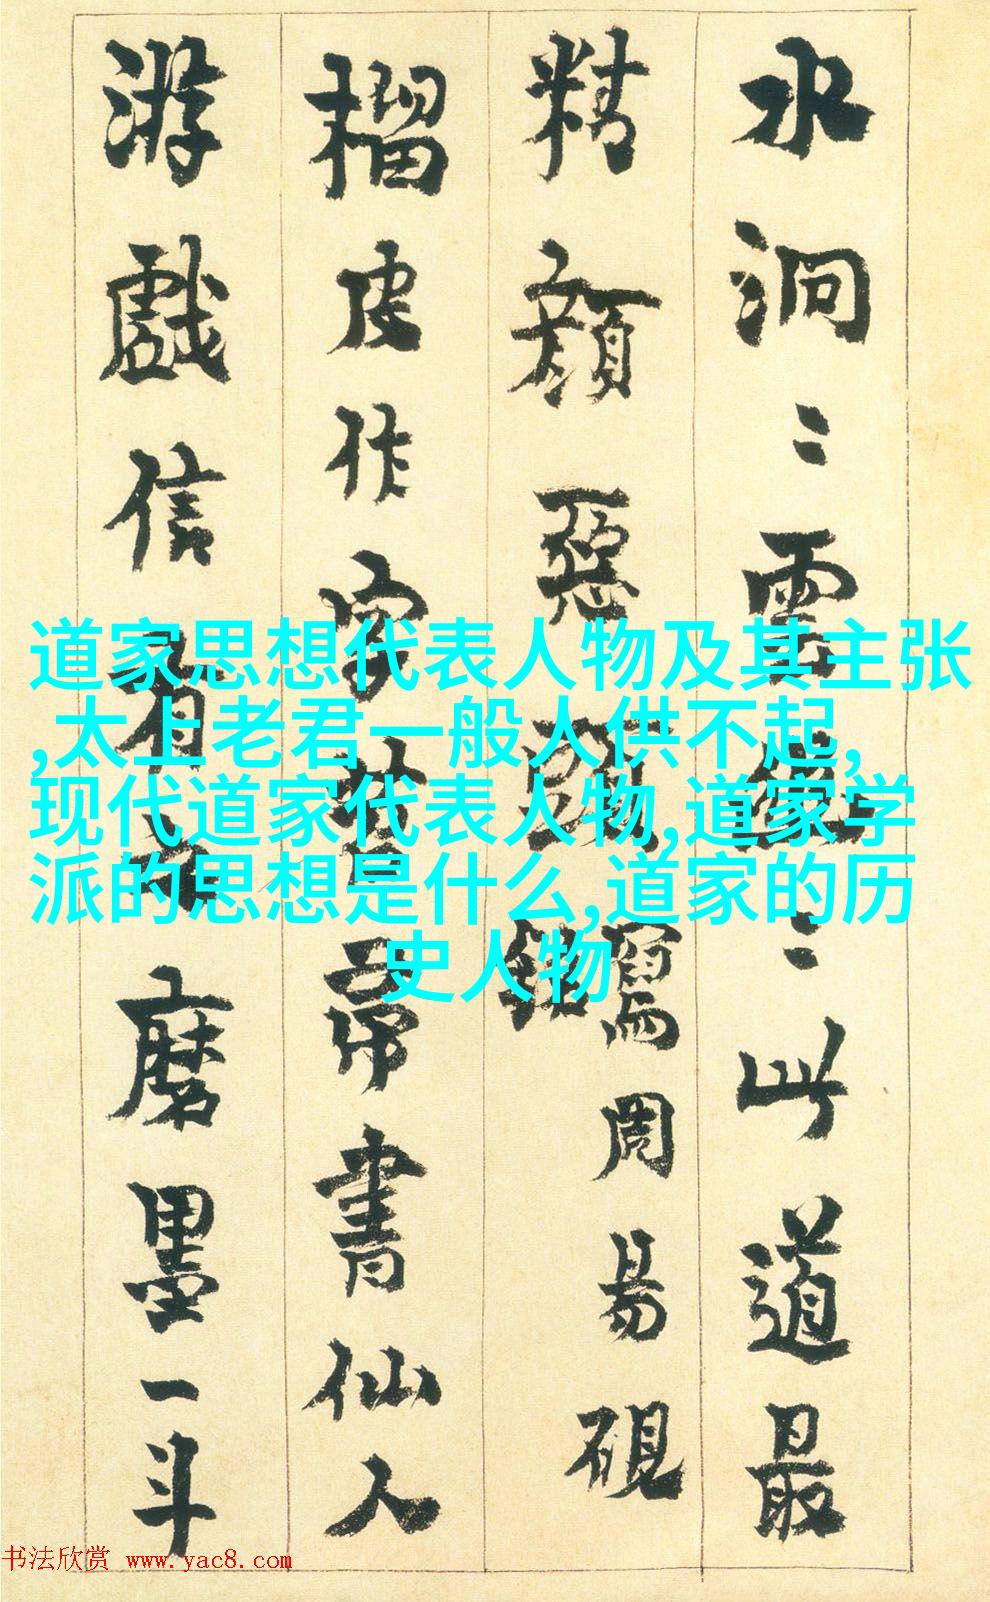 水洞〻雲繞〻此道最
精顏惡頭寫周易硯
榴皮作字苔帚書仙人
游戲信有之磨墨一斗
道家思想代表人物及其主张
,太上老君一般人供不起,
现代道家代表人物,道家学
派的思想是什么,道家的历
史人物
书法欣赏 www.yac8.com